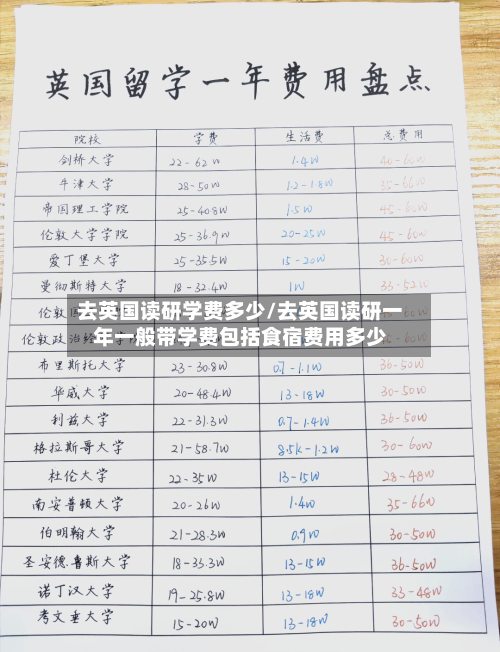 英国留学一年费用盘点
院校 学费 生活费 总费用
剑桥大学 22-62w 1.4W 40-60W
牛津大学 28-50w 1.2-1.8W 35-66W
帝国理工学院 25-40.8W 1.5W 45-60W
伦敦大学学院 25-36.9W 20-25W 45-60W
爱丁堡大学 25-35.5W 15-20W 30-60W
曼彻斯特大学 18-32.4W 1W 33-52W
去英国读研学费多少/去英国读研一
年一般带学费包括食宿费用多少
布里斯托大学 23-30.8W 0.7-1.1W 36-50W
华威大学 20-48.4W 13-18W 30-50W
利兹大学 22-31.3W 0.7-1.4W 36-50W
格拉斯哥大学 21-58.7W 8.5k-1.2W 30-60W
杜伦大学 22-35W 13-15W 28-48W
南安普顿大学 20-26W 1.4W 35-66W
伯明翰大学 21-28.3W 0.9W 30-50W
圣安德鲁斯大学 18-33.3W 13-15W 36-50W
诺丁汉大学 19-25.8W 13-18W 33-48W
考文垂大学 15-20W 13-18W 30-50W